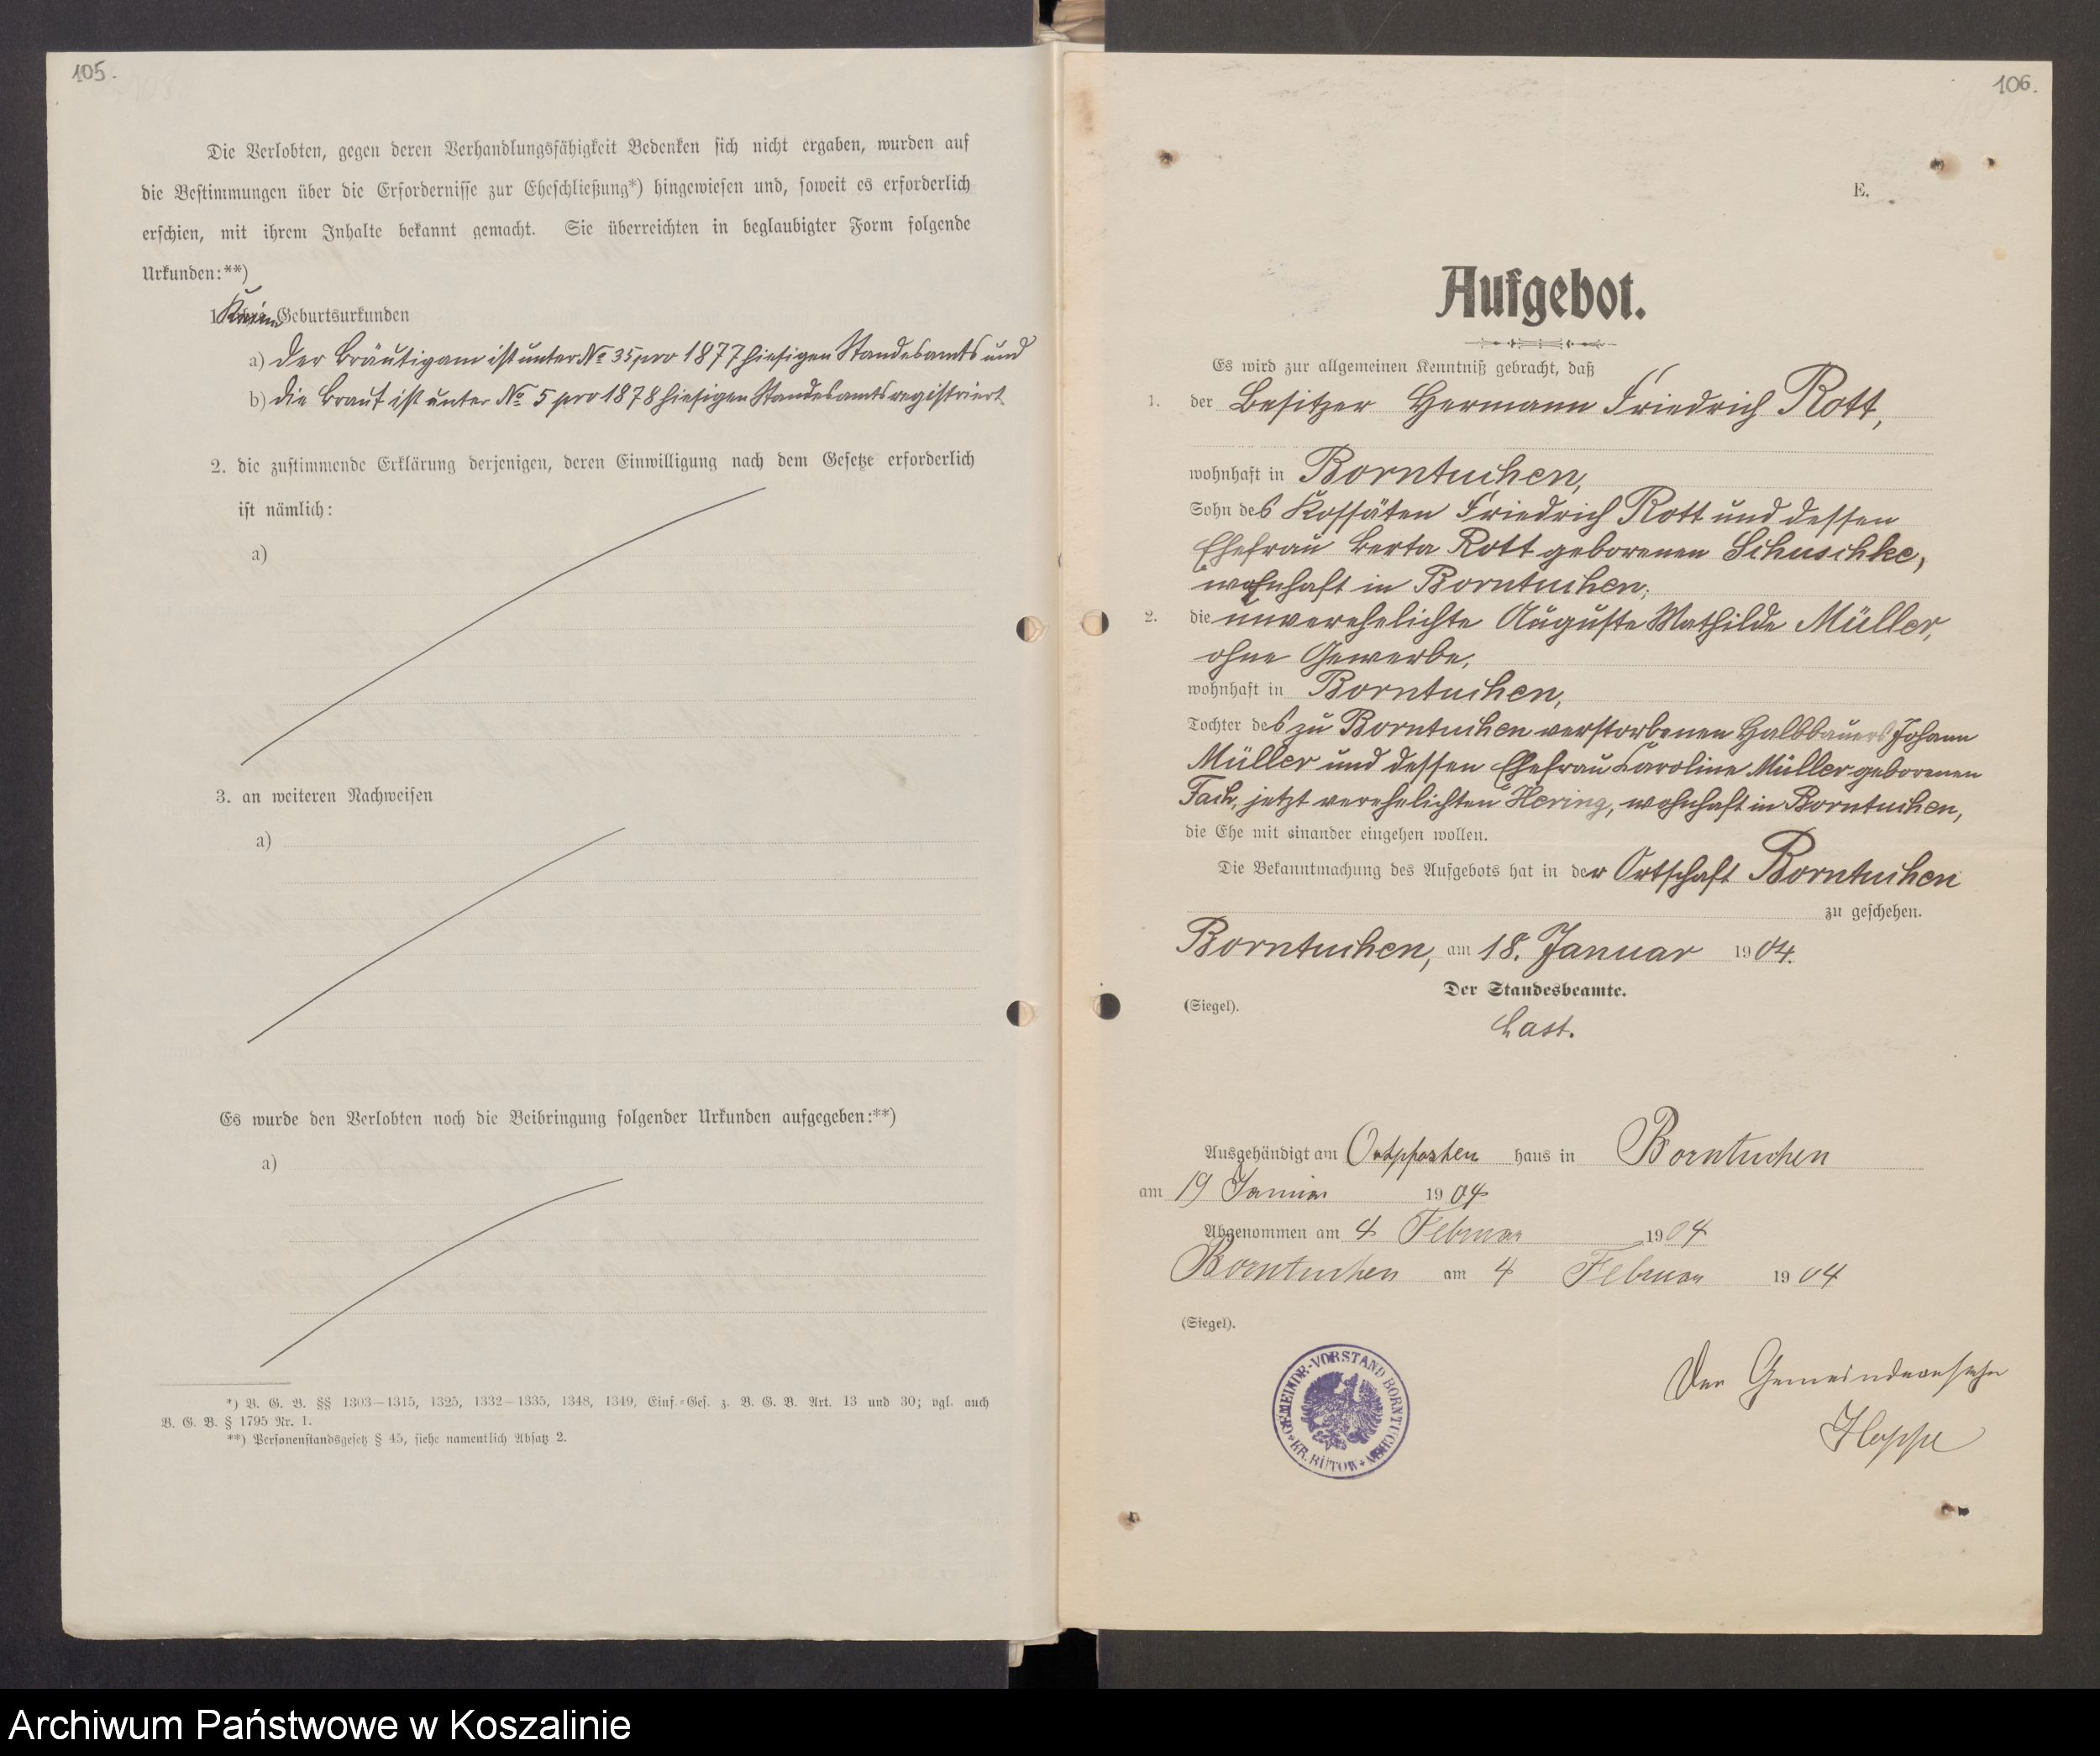 105.
Die Verlobten, gegen deren Verhandlungsfähigkeit Bedenken sich nicht ergaben, wurden auf
die Bestimmungen über die Erfordernisse zur Eheschließung*) hingewiesen und, soweit es erforderlich
erschien, mit ihrem Inhalte bekannt gemacht. Sie überreichten in beglaubigter Form folgende
Urkunden:**)
1. Geburtsurkunden
a) Der Bräutigam ist unter No 35 pro 1877 hiesigen Standesamts und
b) die Braut ist unter No 5 pro 1878 hiesigen Standesamts registriert
2. die zustimmende Erklärung derjenigen, deren Einwilligung nach dem Gesetze erforderlich
ist nämlich:
a)
3. an weiteren Nachweisen
a)
Es wurde den Verlobten noch die Beibringung folgender Urkunden aufgegeben:**)
a)
*) B. G. B. §§ 1303–1315, 1325, 1332–1335, 1348, 1349, Einf.-Ges. z. B. G. B. Art. 13 und 30; vgl. auch
B. G. B. § 1795 Nr. 1.
**) Personenstandsgesetz § 45, siehe namentlich Absatz 2.
106.
E.
Aufgebot.
Es wird zur allgemeinen Kenntniß gebracht, daß
1. der Besitzer Hermann Friedrich Rott,
wohnhaft in Borntuchen,
Sohn des Kossäten Friedrich Rott und dessen
Ehefrau Berta Rott geborenen Schuschke,
wohnhaft in Borntuchen;
2. die unverehelichte Auguste Mathilde Müller,
ohne Gewerbe,
wohnhaft in Borntuchen,
Tochter des zu Borntuchen verstorbenen Halbbauers Johann
Müller und dessen Ehefrau Karoline Müller geborenen
Fach, jetzt verehelichten Hering, wohnhaft in Borntuchen,
die Ehe mit einander eingehen wollen.
Die Bekanntmachung des Aufgebots hat in der Ortschaft Borntuchen
zu geschehen.
Borntuchen, am 18. Januar 1904.
Der Standesbeamte.
(Siegel).
Last.
Ausgehändigt am haus in Borntuchen
am 19 Januar 1904
Abgenommen am 4 Februar 1904
Borntuchen am 4 Februar 1904
(Siegel).
GEMEINDE-VORSTAND BORNTUCHEN * KR. BÜTOW *
Der Gemeindevorsteher
Hoppe
Archiwum Państwowe w Koszalinie